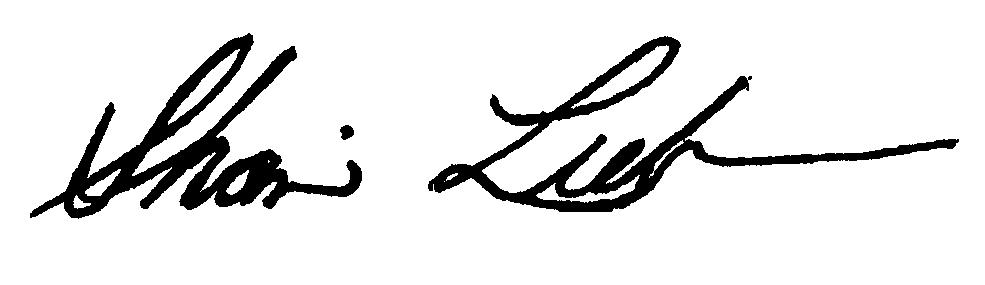 Shari Lieb